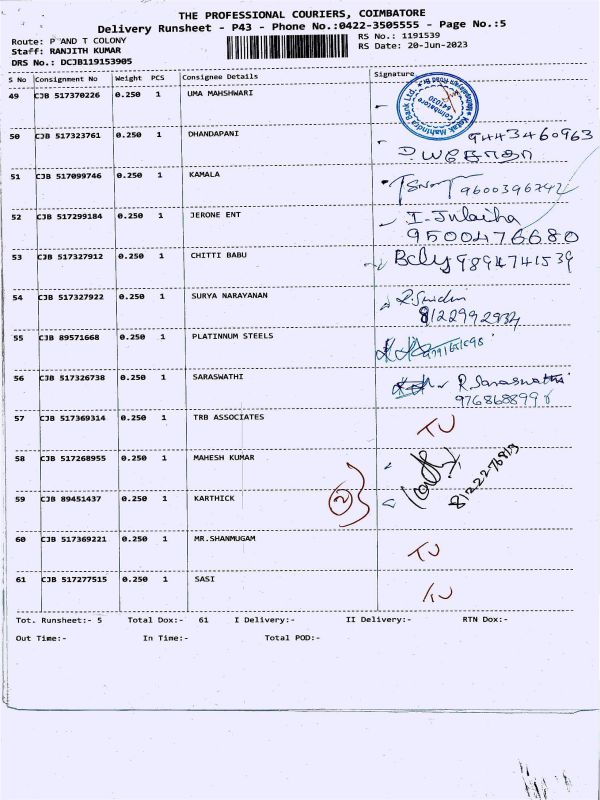 THE PROFESSIONAL COURIERS, COIMBATORE
Delivery Runsheet - P43 - Phone No.:0422-3505555 - Page No.:5
Route: P AND T COLONY
RS No.: 1191539
Staff: RANJITH KUMAR
RS Date: 20-Jun-2023
DRS No.: DCJB119153905
S No Consignment No Weight PCS Consignee Details Signature
49 CJB 517370226 0.250 1 UMA MAHSHWARI
Kotak Mahindra Bank Ltd.
Coimbatore
641020
50 CJB 517323761 0.250 1 DHANDAPANI 9443460963
51 CJB 517099746 0.250 1 KAMALA 9600396742
52 CJB 517299184 0.250 1 JERONE ENT I. Julaiha
9500476680
53 CJB 517327912 0.250 1 CHITTI BABU 9894741539
54 CJB 517327922 0.250 1 SURYA NARAYANAN
8122992934
55 CJB 89571668 0.250 1 PLATINNUM STEELS
56 CJB 517326738 0.250 1 SARASWATHI R. Saraswathi
57 CJB 517369314 0.250 1 TRB ASSOCIATES
58 CJB 517268955 0.250 1 MAHESH KUMAR
59 CJB 89451437 0.250 1 KARTHICK 2
60 CJB 517369221 0.250 1 MR.SHANMUGAM
61 CJB 517277515 0.250 1 SASI
Tot. Runsheet:- 5 Total Dox:- 61 I Delivery:- II Delivery:- RTN Dox:-
Out Time:- In Time:- Total POD:-